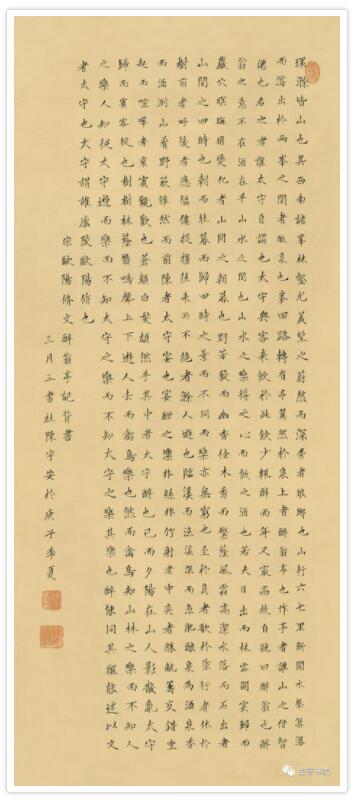 環滁皆山也其西南諸峯林壑尤美望之蔚然而深秀者琅琊也山行六七里漸聞水聲潺潺
而瀉出於兩峯之間者釀泉也峯回路轉有亭翼然於泉上者醉翁亭也作亭者誰山之僧智
僊也名之者誰太守自謂也太守與客來飲於此飲少輒醉而年又最高故自號曰醉翁也醉
翁之意不在酒在乎山水之間也山水之樂得之心而寓之酒也若夫日出而林霏開雲歸而
巖穴暝晦明變化者山間之朝暮也野芳發而幽香佳木秀而繁蔭風霜高潔水落而石出者
山間之四時也朝而往暮而歸四時之景而不同而樂亦無窮也至於負者歌於塗行者休於
樹前者呼後者應傴僂提攜往來而不絕者滁人遊也臨溪而漁溪深而魚肥釀泉為酒泉香
而酒洌山肴野蔌雜然而前陳者太守宴也宴酣之樂非絲非竹射者中奕者勝觥籌交錯坐
起而諠譁者衆賓歡也蒼顏白髮頹然乎其中者太守醉也已而夕陽在山人影散亂太守
歸而賓客從也樹林蔭翳鳴聲上下遊人去而禽鳥樂也然而禽鳥知山林之樂而不知人
之樂人知從太守遊而樂而不知太守之樂其樂也醉能同其樂醒能述以文
者太守也太守謂誰廬陵歐陽修也
宋歐陽修文醉翁亭記背書
三月三書社陳宇安於庚子季夏